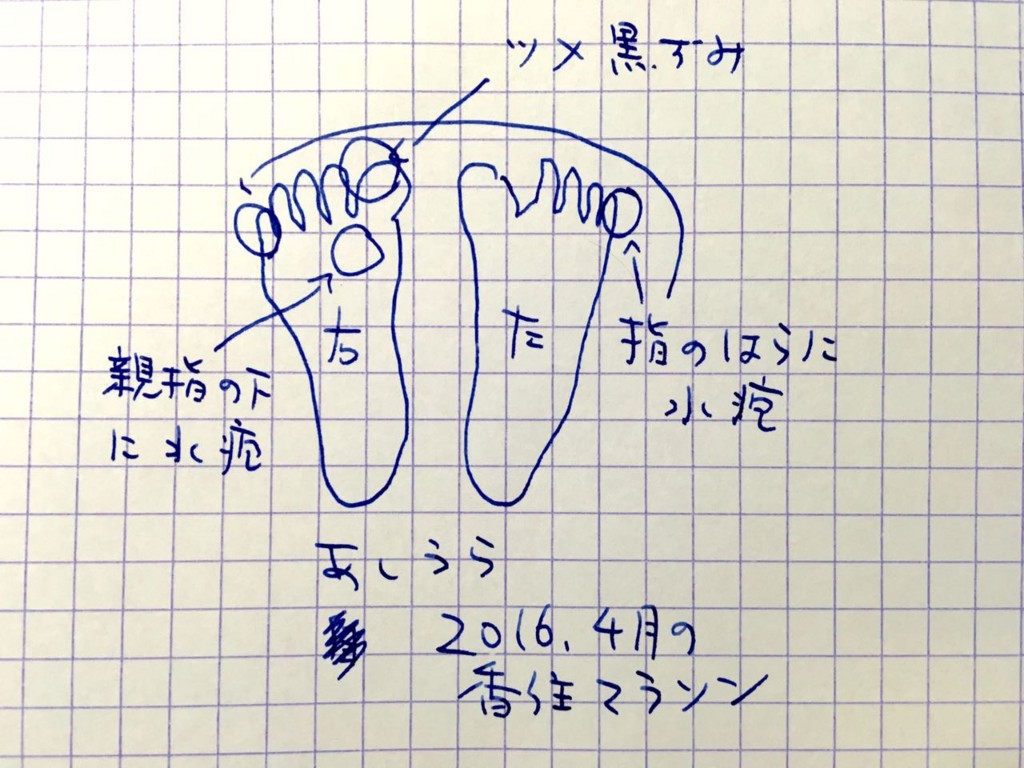 ツメ黒ずみ
右
左
指のはらに
水疱
親指の下
に水疱
あしうら
2016.4月の
香住マラソン